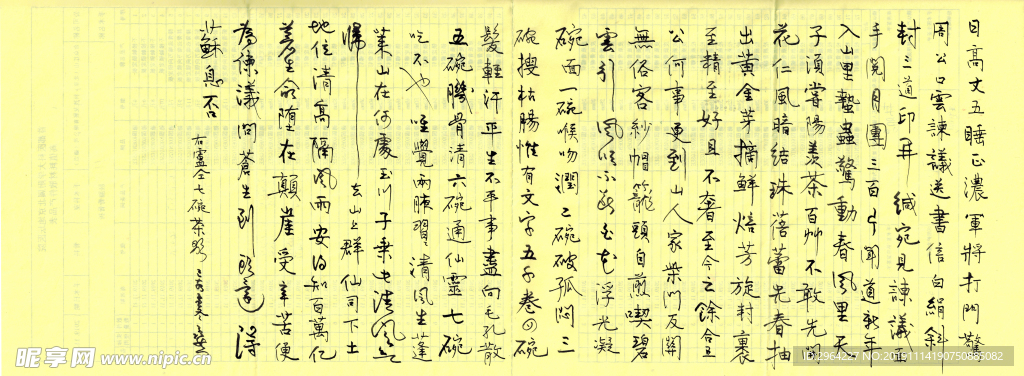 日高丈五睡正濃軍將打門驚
周公口雲諫議送書信白絹斜
封三道印開緘宛見諫議面
手閱月團三百片聞道新年
入山里蟄蟲驚動春風里天
子須嘗陽羨茶百艸不敢先開
花仁風暗結珠蓓蕾先春抽
出黃金芽摘鮮焙芳旋封裹
至精至好且不奢至今之餘合王
公何事更到山人家柴門反關
無俗客紗帽籠頭自煎喫碧
雲引風吹不斷白花浮光凝
碗面一碗喉吻潤二碗破孤悶三
碗搜枯腸惟有文字五千卷四碗
髮輕汗平生不平事盡向毛孔散
五碗肌骨清六碗通仙靈七碗
吃不也唯覺兩腋習清風生蓬
萊山在何處玉川子乘此清風欲
歸去山上群仙司下土
地位清高隔風雨安得知百萬億
蒼生命墮在顛崖受辛苦便
為諫議問蒼生到頭還得
蘇息否
右盧仝七碗茶歌
昵享网 www.nipic.cn
ID:2964227 NO:20191114190750885082